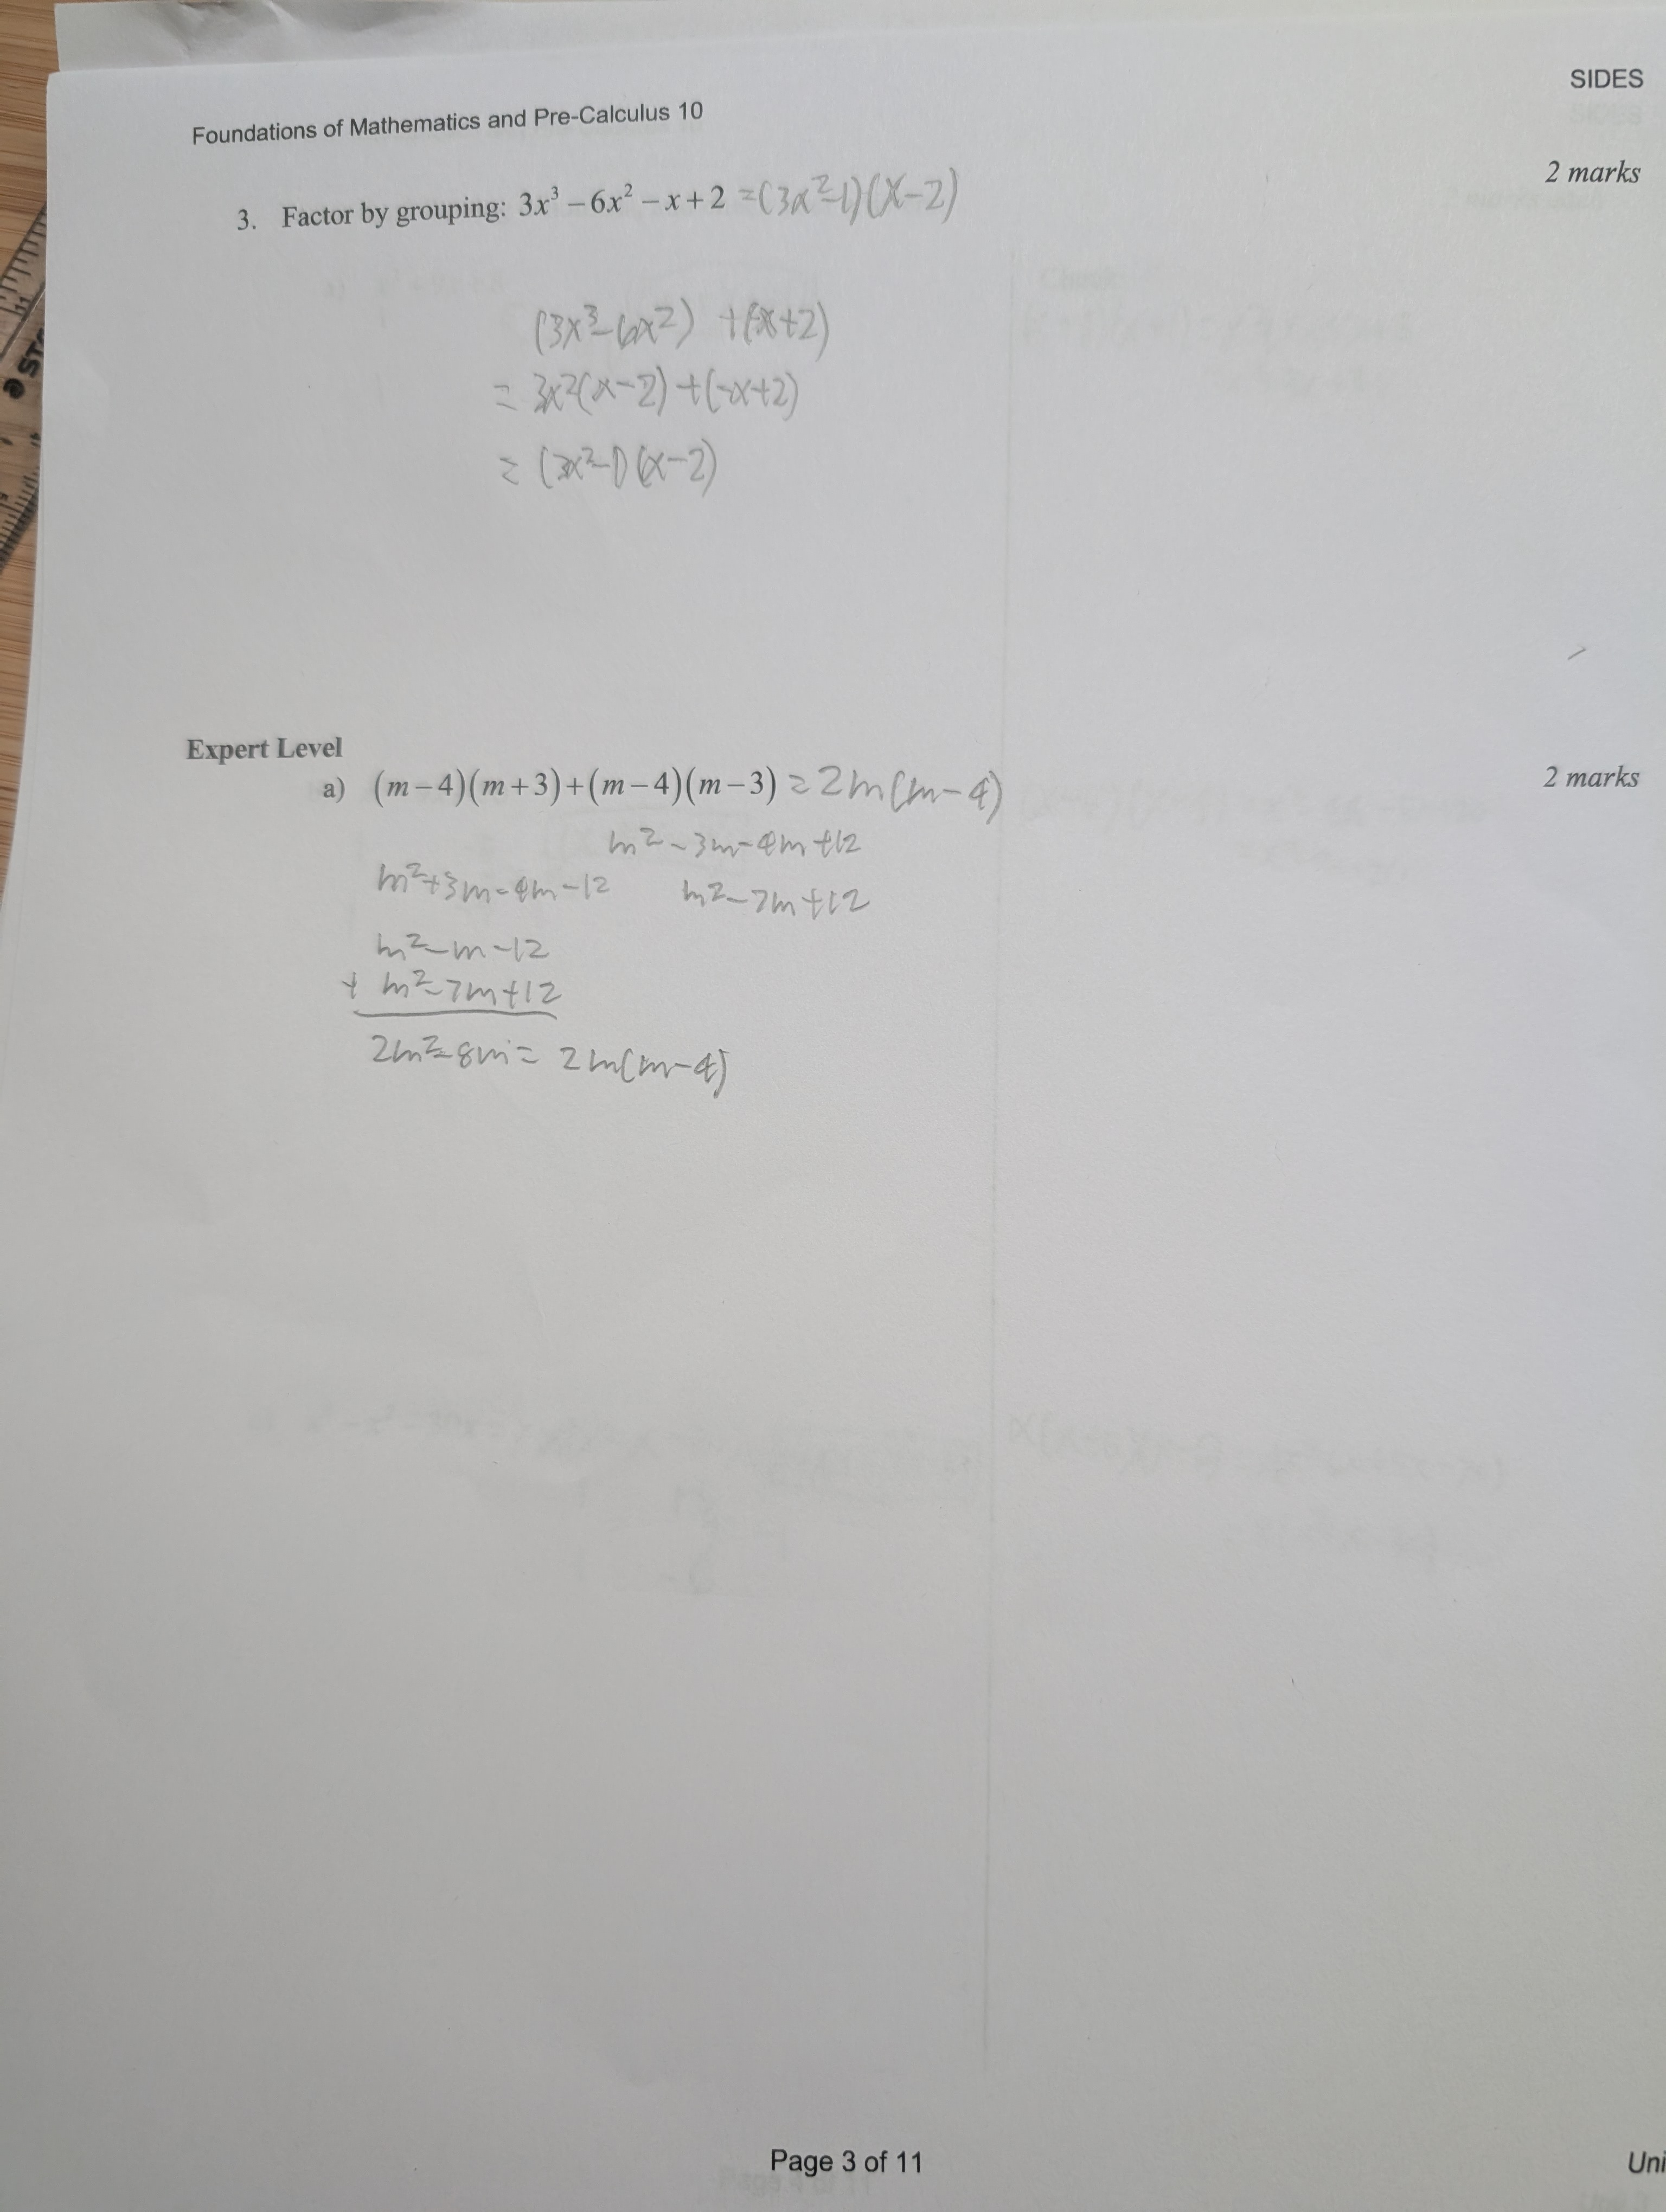 SIDES
Foundations of Mathematics and Pre-Calculus 10
2 marks
3. Factor by grouping: 3x³ − 6x² − x + 2 = (3x² − 1)(x − 2)
(3x³ − 6x²) + (−x + 2)
= 3x²(x − 2) + (−x + 2)
= (3x² − 1)(x − 2)
Expert Level
a) (m − 4)(m + 3) + (m − 4)(m − 3) = 2m(m − 4)
2 marks
m² − 3m − 4m + 12
m² + 3m − 4m − 12
m² − 7m + 12
m² − m − 12
+ m² − 7m + 12
2m² − 8m = 2m(m − 4)
Page 3 of 11
Uni